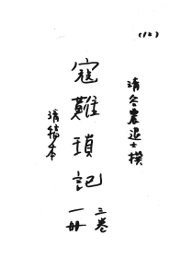 (12)
清今農退士撰
寇難瑣記
三卷
一册
清稿本